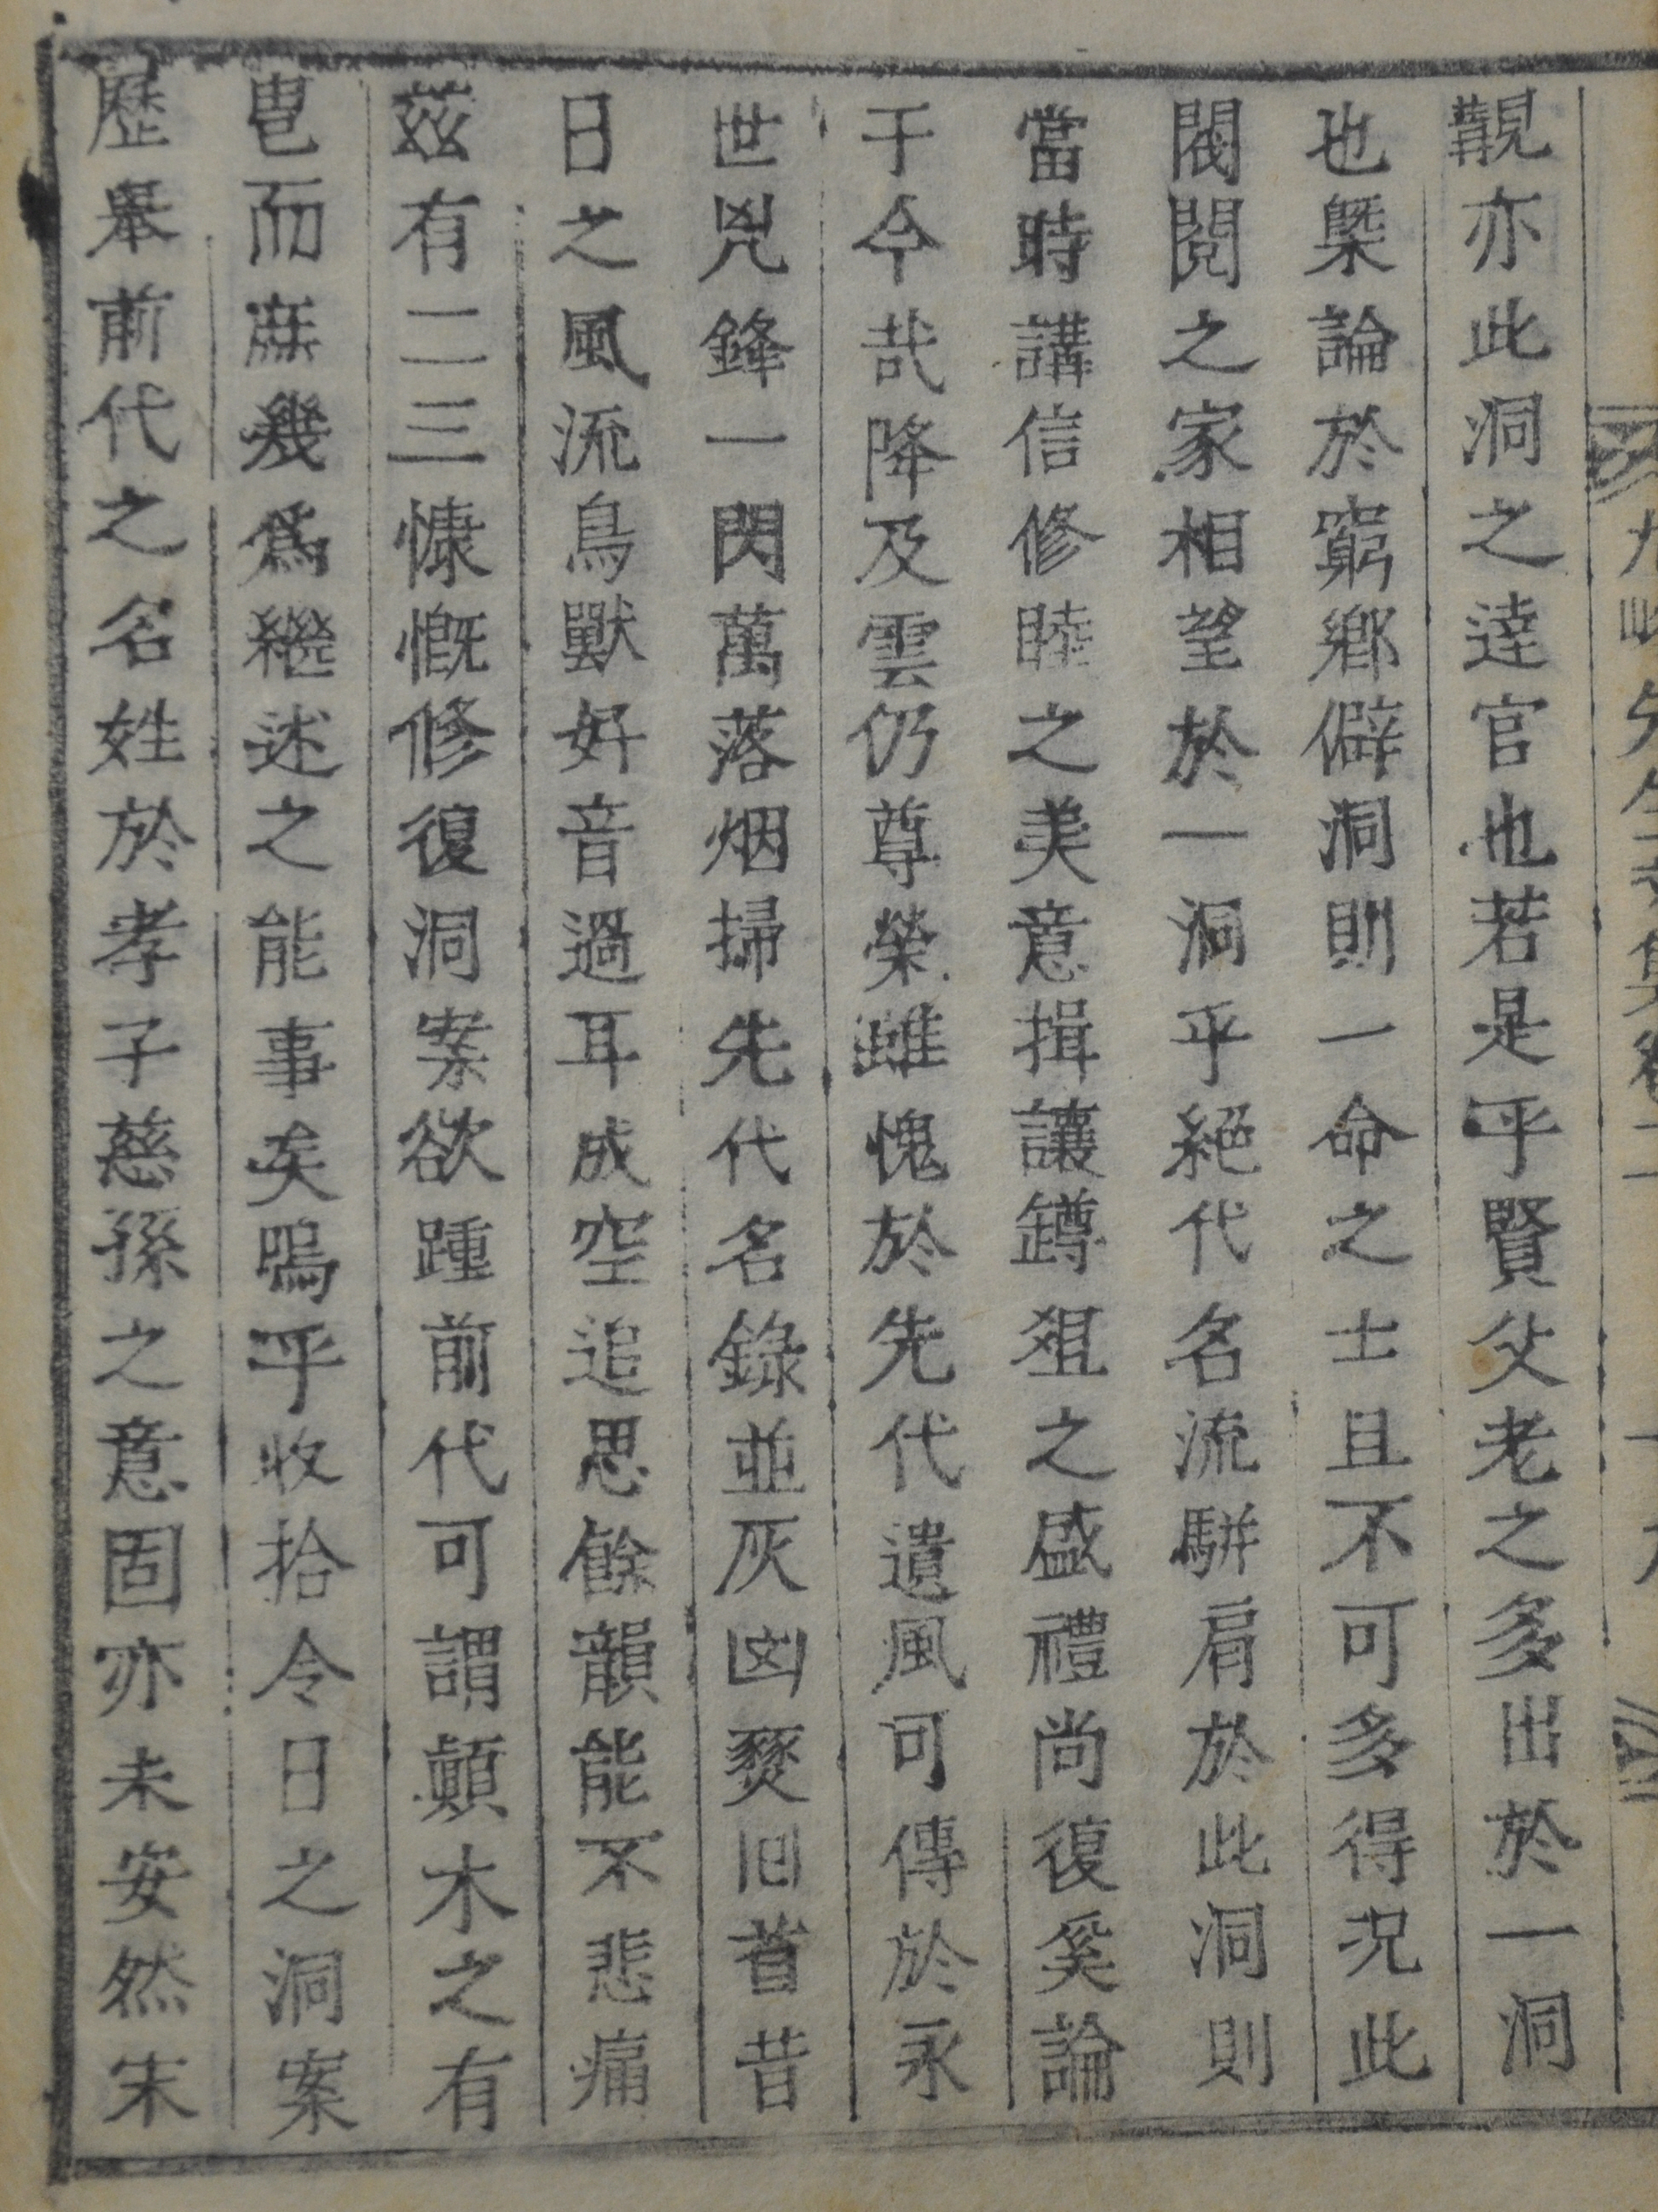 覯亦此洞之達官也若是乎賢父老之多出於一洞
也槩論於窮鄕僻洞則一命之士且不可多得況此
閥閱之家相望於一洞乎絕代名流騈肩於此洞則
當時講信修睦之美意揖讓罇俎之盛禮尚復奚論
于今哉降及雲仍尊榮雖愧於先代遺風可傳於永
世兇鋒一閃萬落烟掃先代名錄並灰凶燹回首昔
日之風流鳥獸好音過耳成空追思餘韻能不悲痛
茲有二三慷慨修復洞案欲踵前代可謂顚木之有
甹而庶幾爲繼述之能事矣嗚乎收拾今日之洞案
歷舉前代之名姓於孝子慈孫之意固亦未安然宋
先生文集卷二